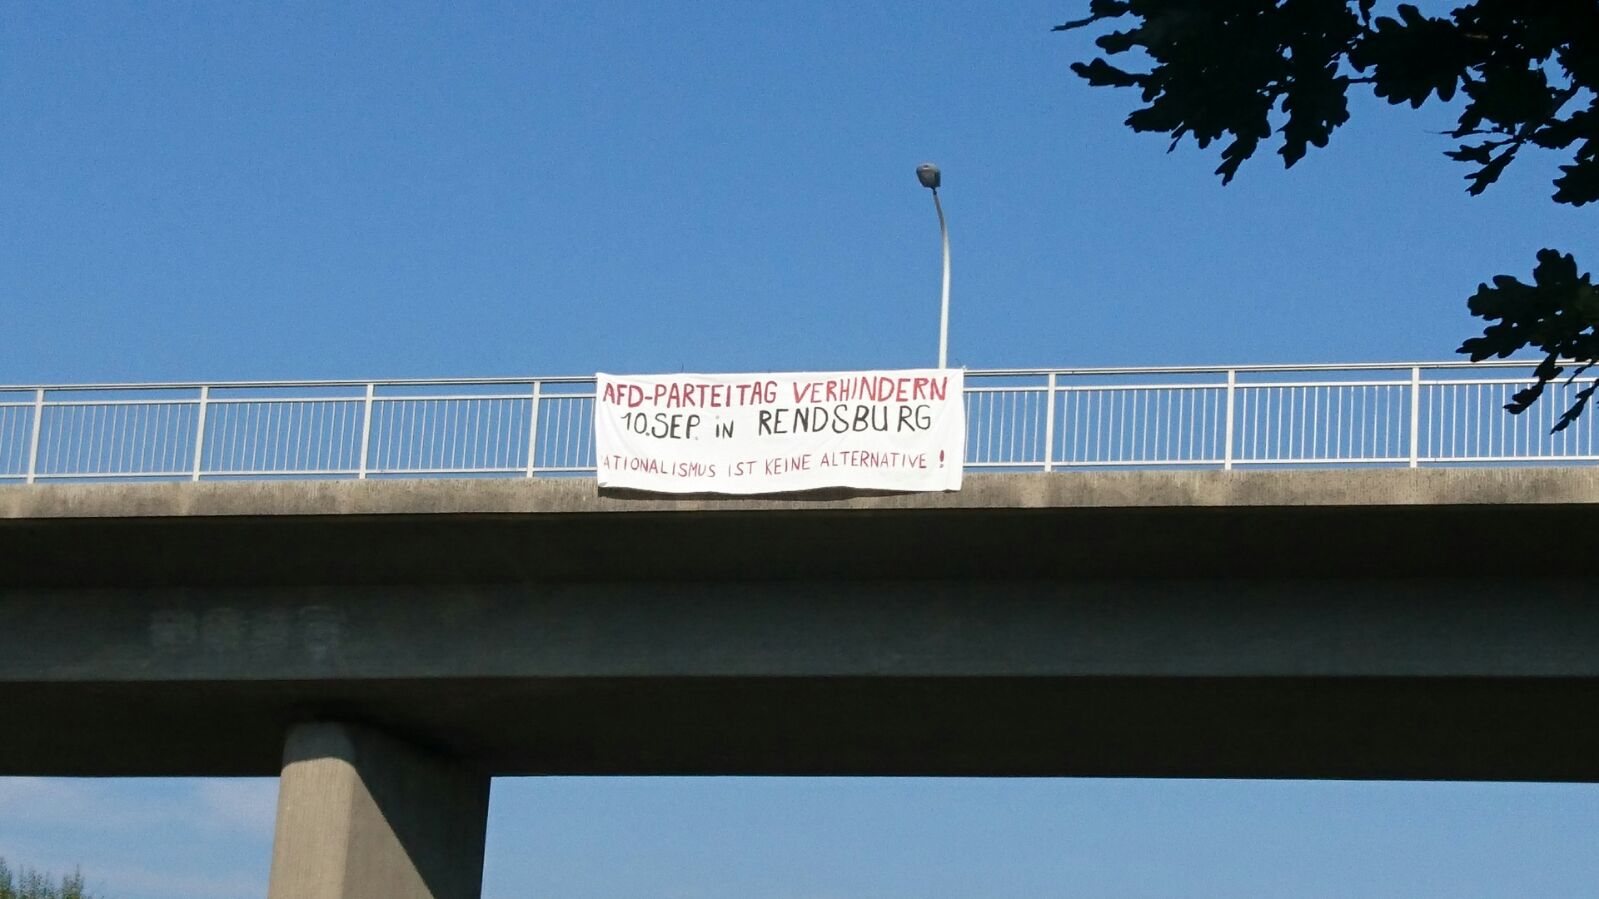 AFD-PARTEITAG VERHINDERN
10.SEP. in RENDSBURG
ATIONALISMUS IST KEINE ALTERNATIVE !